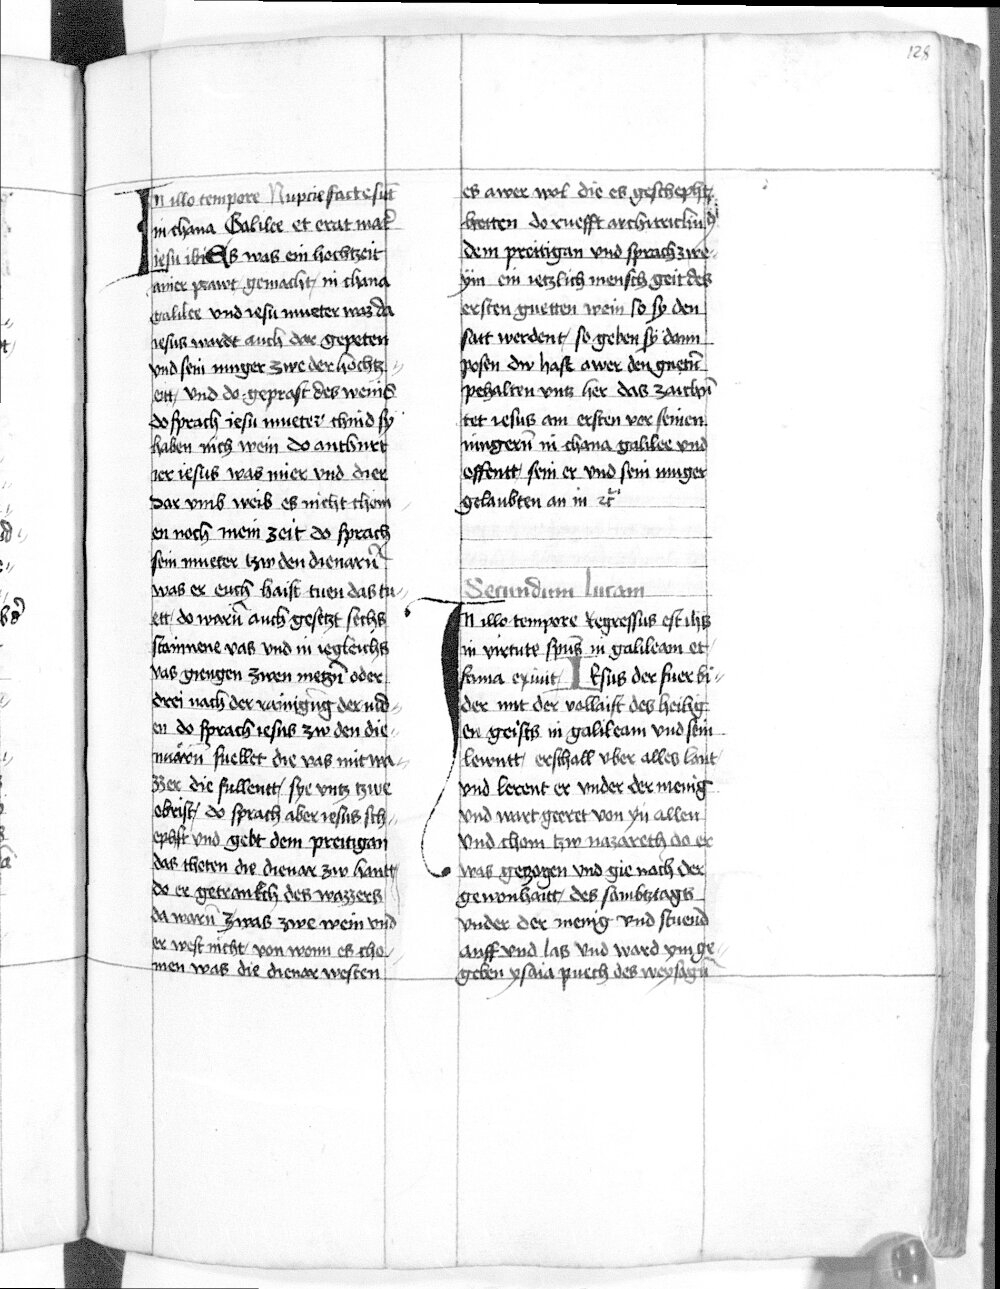 128
In illo tempore Nupcie facte sūt
in chana Galilee et erat mat̄
iesu ibi Es was ein hochtzeit
ainer prawt gemacht in chana
galilee vnd iesu mueter waz da
iesus wardt auch dar gepeten
vnd sein iunger zwe der hochtz
eitt vnd do geprast des weins
do sprach iesu mueter chind sy
haben nich wein do antburt
ier iesus was mier vnd dier
dar vmb weib es nicht chom
en noch mein zeit do sprach
sein mueter tzw den dienarn̄
was er euch haist tuen das tu
ett do warn̄ auch gesetzt sechs
stainnene vas vnd in iegleichs
vas giengen zwen metzn̄ oder
drei nach der rainigūg der iud
en do sprach iesus zw den die
nnarn̄ fuellet die vas mit wa
zzer die fullentt sye vntz tzwe
obrist do sprach aber iesus sch
ephft vnd gebt dem preitigan
das theten die dienar zw hantt
do er getrankch des wazzers
da warn̄ zwas zwe wein vnd
er west nicht von wonn es cho
men was die dienar westen
es awer wol die es geschephtz
hetten do rueft architriclin9
dem preitigan vnd sprach zwe
ym ein ietzlich mensch geit des
ersten guetten wein so sy den
satt werdent so geben sy dann
posen dw hast awer den guetn̄
pehalten vntz her das zaichn̄
tet iesus am ersten vor seinen
iungern̄ in chana galilee vnd
offentt sein er vnd sein iunger
gelaubten an in ꝛc̄
Secundum lucam
In illo tempore regressus est ihs
in virtute spūs in galileam et
fama exiuit Iesus der fuer bi
der mit der vollaist des heilig
en geists in galileam vnd sein
lewntt erschall vber alles lant
vnd lerent er vnder der menig
vnd wart geeret von yn allen
vnd chom tzw nazareth do er
was getzogen vnd gie nach der
gewonhaitt des sambtztags
vnder der menig vnd stuend
auff vnd las vnd ward ym ge
geben ysaia puech des weysagn̄